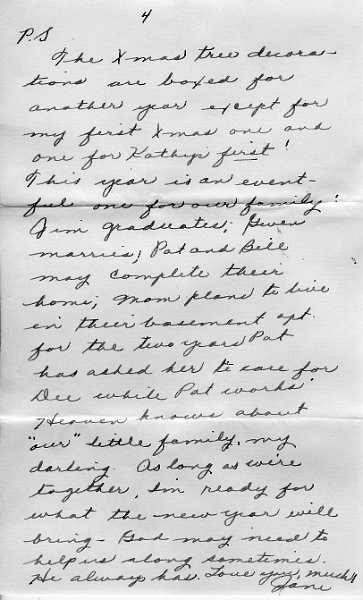 4
P.S
The Xmas tree decora-
tions are boxed for
another year except for
my first Xmas one and
one for Kathy's first!
This year is an event-
ful one for our family:
Jim graduates; Gwen
marries; Pat and Bill
may complete their
home; Mom plans to live
in their basement apt.
for the two years Pat
has asked her to care for
Dee while Pat works.
Heaven knows about
"our" little family, my
darling. As long as we're
together, I'm ready for
what the new year will
bring - God may need to
help us along sometimes.
He always has. Love you, much,
Jane